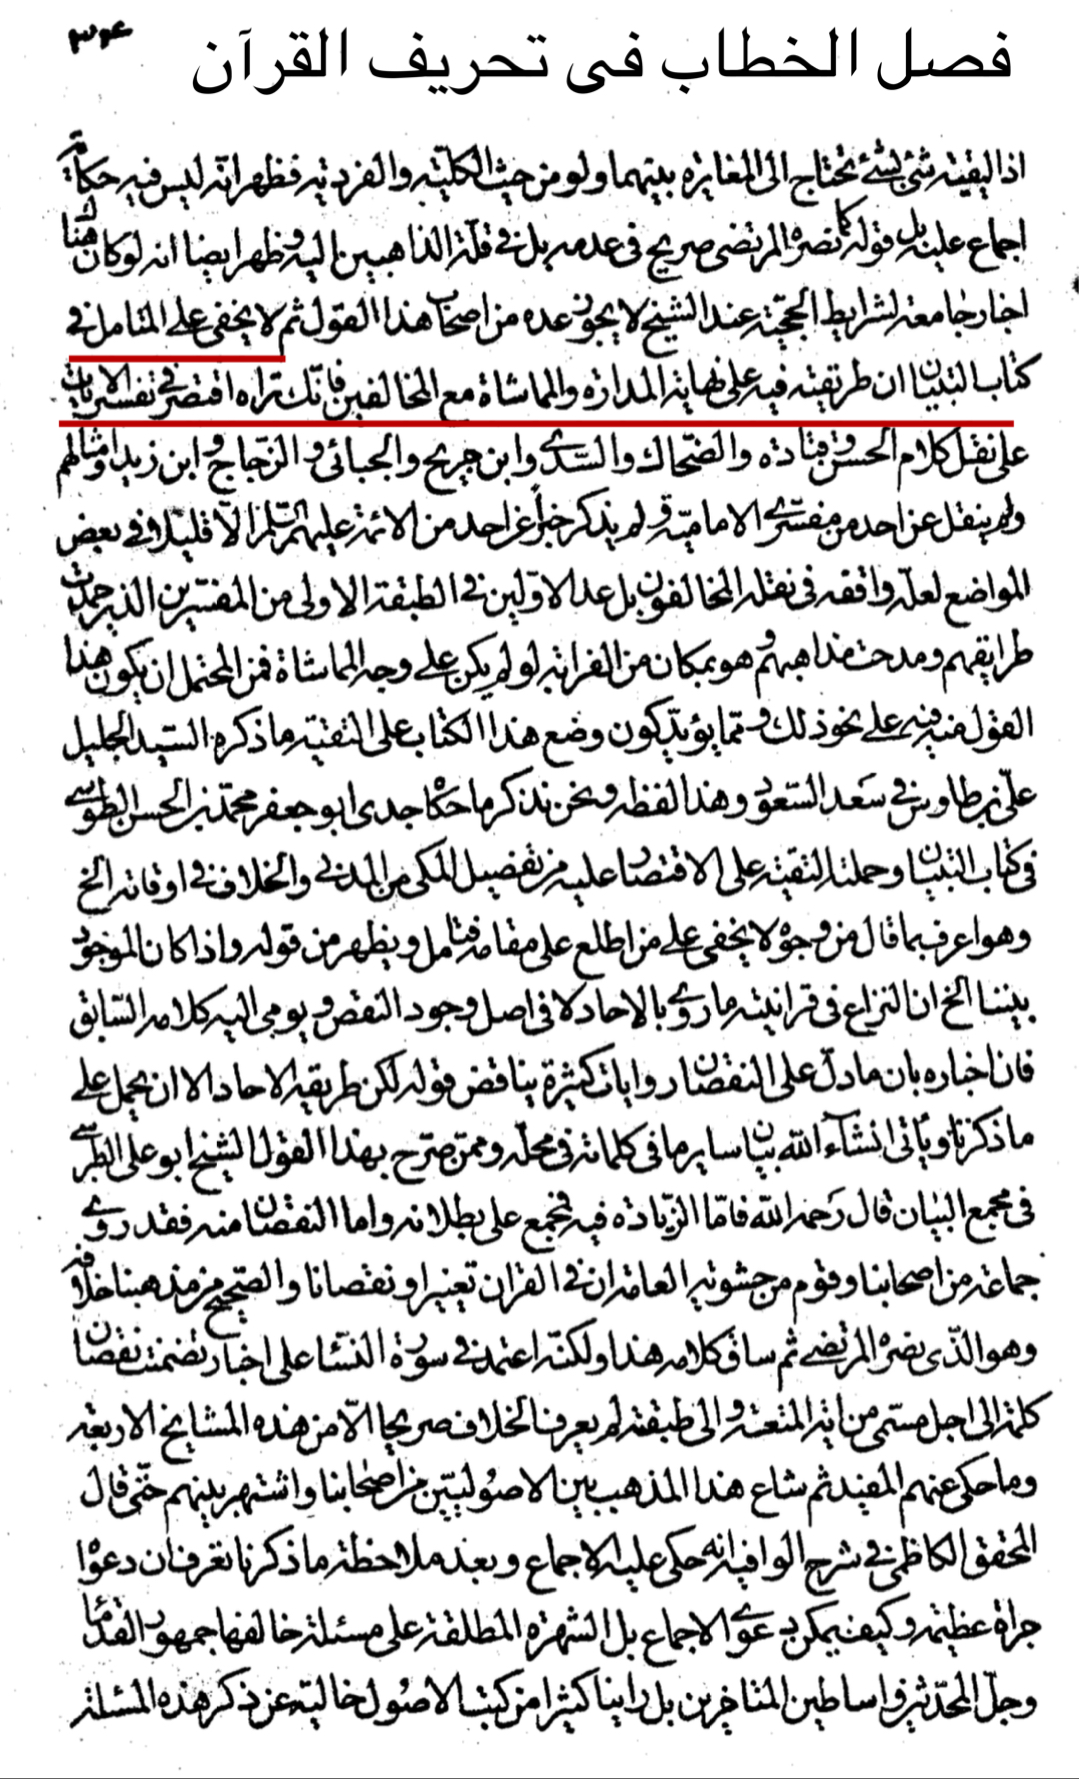 ٣٠٤
فصل الخطاب فی تحریف القرآن
اذ اليقينه شئ بشئ تحتاج الى المغايرة بينهما ولو من حيث الكلية والفردية فظهر انه ليس فيه حكاية
اجماع عليه بل قوله كما نصره المرتضى صريح فى عدمه بل فى قلة الذاهبين اليه وظهر ايضا انه لو كان هناك
اخبار جامعة لشرايط الحجية عند الشيخ لا يجوز عده من اصحاب هذا القول ثم لا يخفى على المتامل فى
كتاب التبيان ان طريقته فيه على نهاية المداراة والمماشاة مع المخالفين فانك تراه اقتصر فى تفسير الايات
على نقل كلام الحسن وقتادة والضحاك والسدي وابن جريح والجبائى والزجاج وابن زيد وامثالهم
ولم ينقل عن احد من مفسري الامامية ولم يذكر خبرا عن احد من الائمة عليهم السلم الا قليلا فى بعض
المواضع لعله وافقه فى نقله المخالفون بل عد الاولين فى الطبقة الاولى من المفسرين الذين حمدت
طرايقهم ومدحت مذاهبهم وهو بمكان من الغرابة لو لم يكن على وجه المماشاة فمن المحتمل ان يكون هذا
القول منه فيه على نحو ذلك ومما يؤيد كون وضع هذا الكتاب على التقية ما ذكره السيد الجليل
على بن طاوس فى سعد السعود وهذا لفظه ونحن نذكر ما حكاه جدى ابو جعفر محمد بن الحسن الطوسي
فى كتاب التبيان وحملته التقية على الاقتصار عليه من تفصيل المكى من المدنى والخلاف فى اوقاته الخ
وهو اعرف بما قال من وجوه لا يخفى على من اطلع على مقامه فتامل ويظهر من قوله واذا كان الموجود
بيننا الخ ان النزاع فى قرانية ما روي بالاحاد لا فى اصل وجود النقص ويومى اليه كلامه السابق
فان اخباره بان ما دل على النقصان روايات كثيرة يناقض قوله لكن طريقه الاحاد الا ان يحمل على
ما ذكرنا وياتى انشآء الله بيان ساير ما فى كلماته فى محله وممن صرح بهذا القول الشيخ ابو على الطبرسي
فى مجمع البيان قال رحمه الله فاما الزيادة فيه فمجمع على بطلانه واما النقصان منه فقد روي
جماعة من اصحابنا وقوم من حشوية العامة ان فى القران تغييرا ونقصانا والصحيح من مذهبنا خلافه
وهو الذى نصره المرتضى ثم ساق كلامه هذا ولكنه اعتمد فى سورة النساء على اخبار تضمنت نقصان
كلمة الى اجل مسمى من اية المتعة والى طبقته لم يعرف الخلاف صريحا الا من هذه المشايخ الاربعة
وما حكى عنهم المفيد ثم شاع هذا المذهب بين الاصوليين من اصحابنا واشتهر بينهم حتى قال
المحقق الكاظمى فى شرح الوافية انه حكى عليه الاجماع وبعد ملاحظة ما ذكرنا تعرف ان دعواه
جراة عظيمة وكيف يمكن دعوي الاجماع بل الشهرة المطلقة على مسئلة خالفها جمهور القدماء
وجل المحدثين واساطين المتاخرين بل راينا كثيرا من كتب الاصول خالية عن ذكر هذه المسئلة